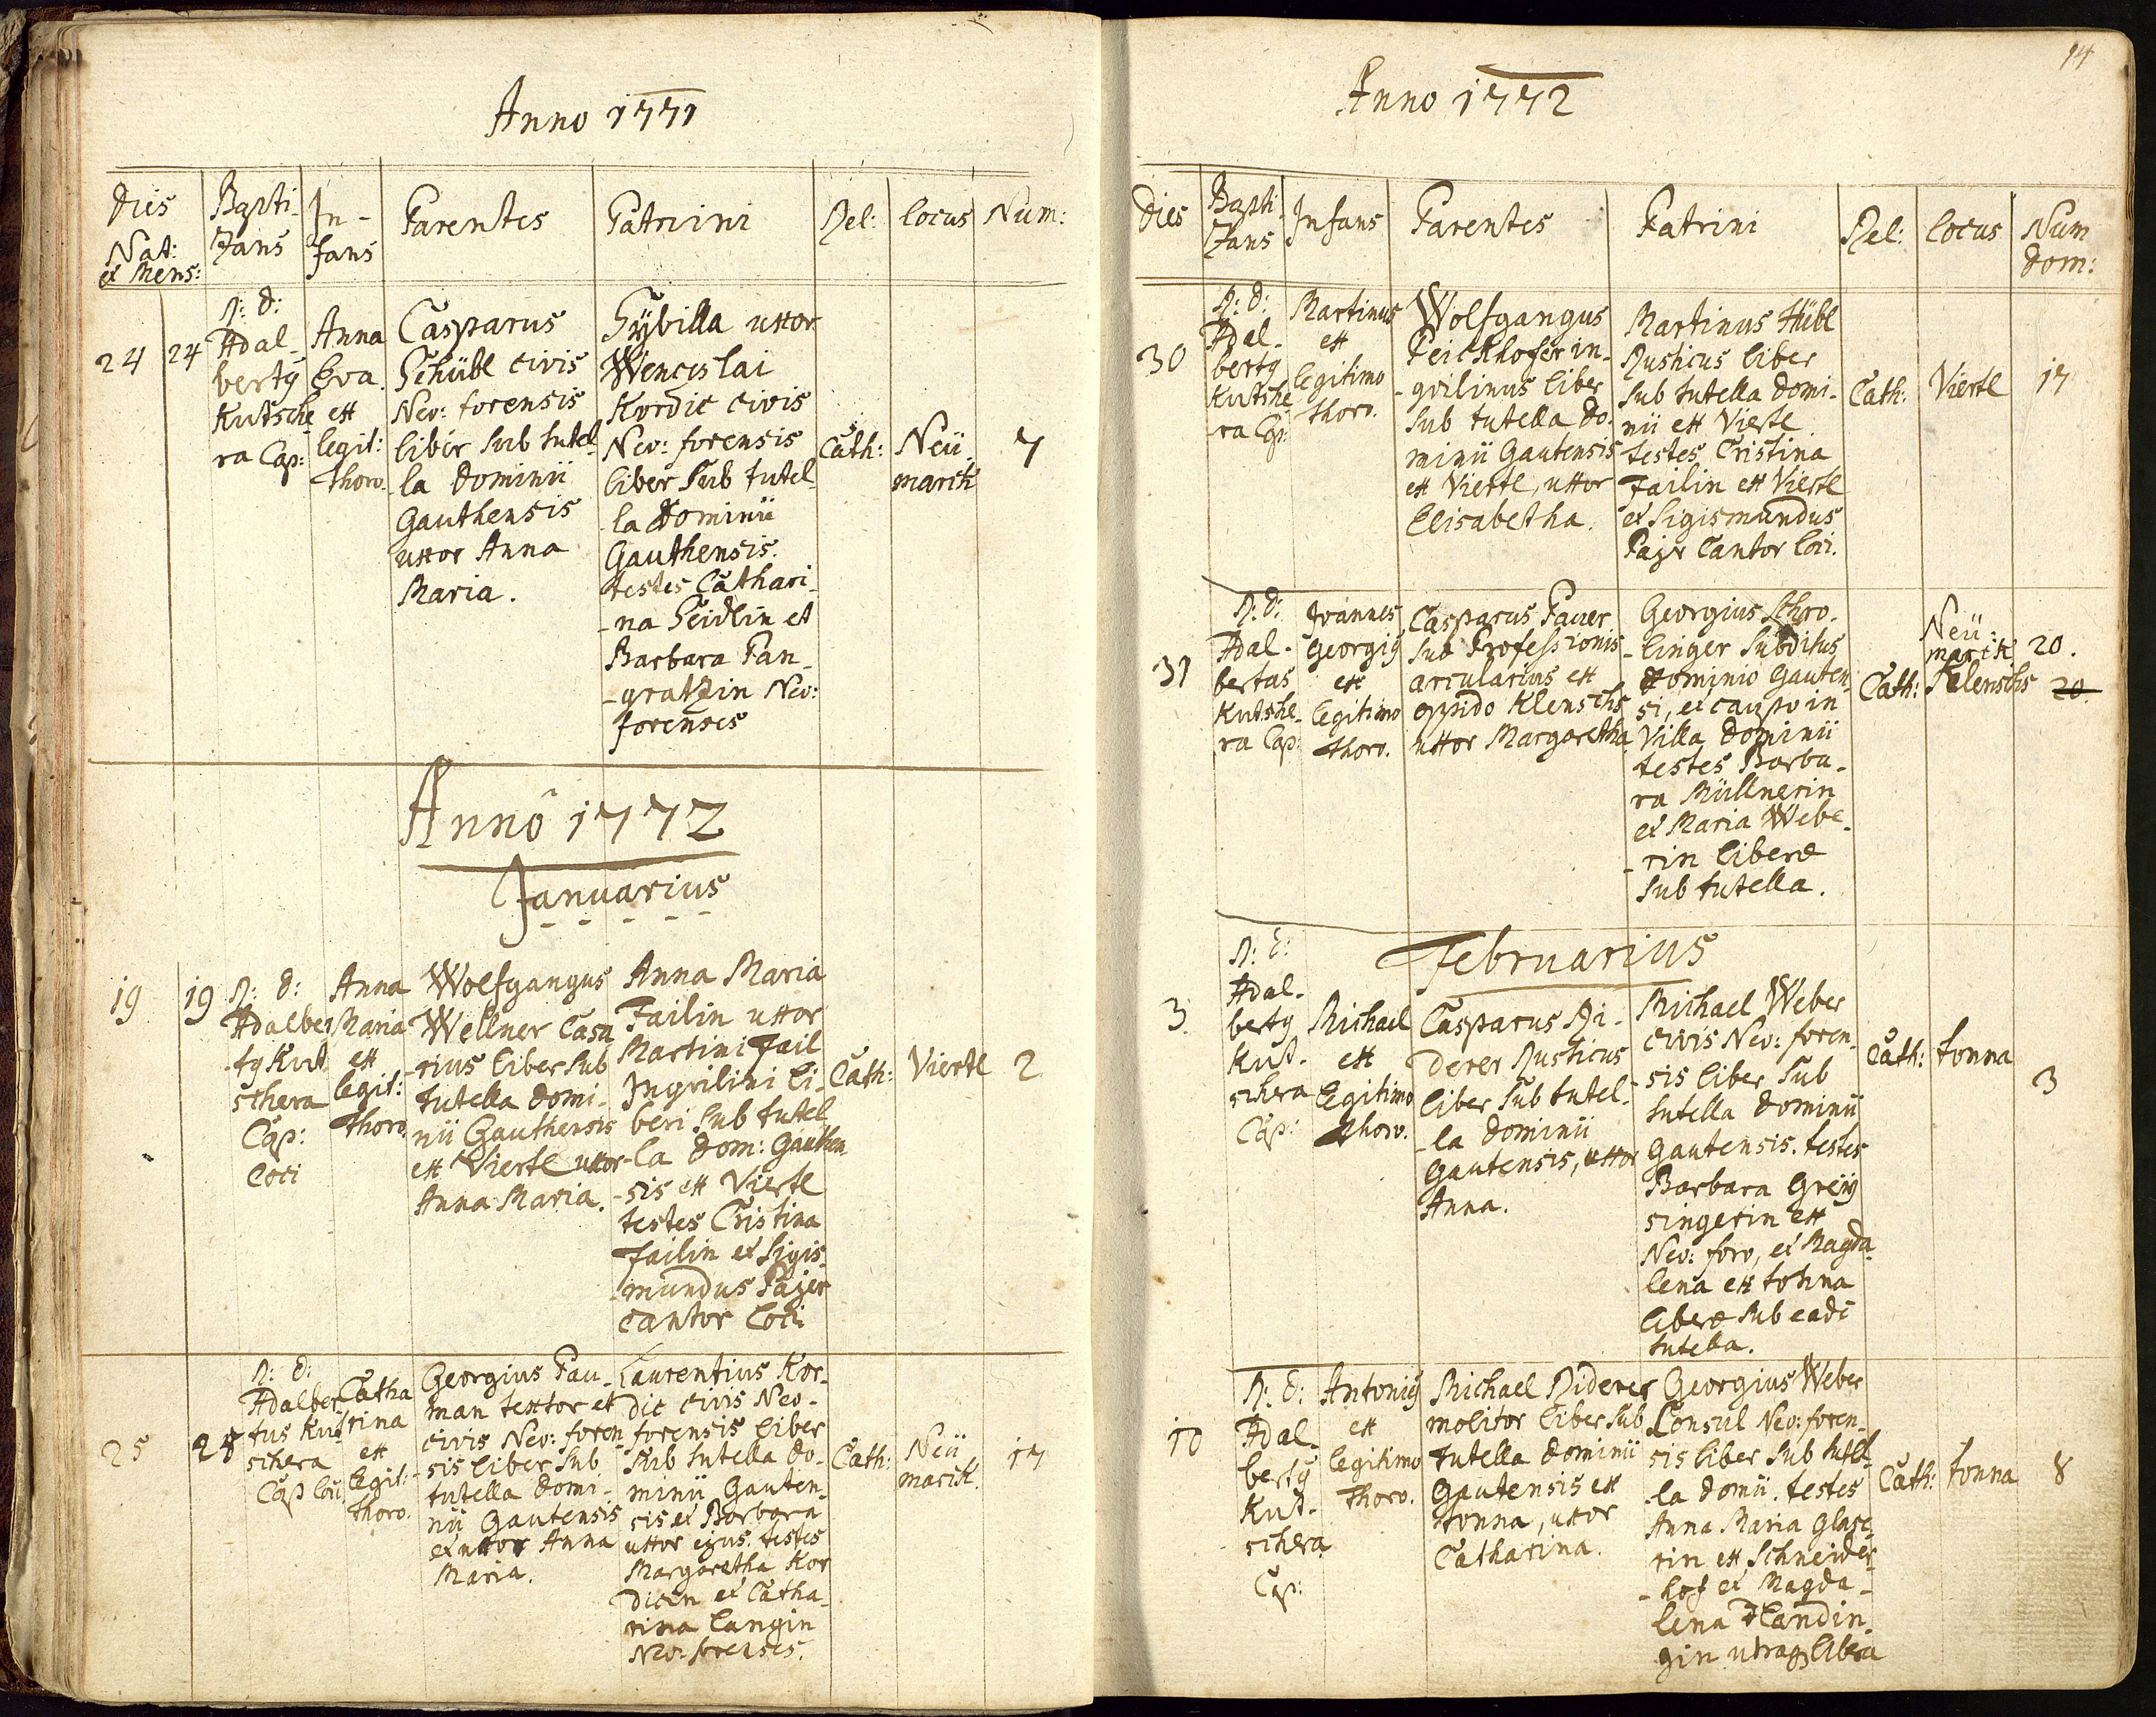 Anno 1771
Dies
Nat:
et Mens:
Bapti-
zans
In-
fans
Parentes
Patrini
Rel:
Locus
Num:
24
24
R: d:
Adal-
bertg
Kutsche
ra Cap:
Anna
Eva
ex
legit:
thoro.
Casparus
Schübl civis
Neo: forensis
liber sub tutel-
la dominii
Gauthensis
uxor Anna
Maria.
Sÿbilla uxor
Wenceslai
Kordic civis
Neo: forensis
liber sub tutel-
la dominii
Gauthensis.
testes Cathari-
na Seidlin et
Barbara Pan-
gratzin Neo:
forenses
Cath:
Neü
markt
7
Anno 1772
Januarius
19
19
R: d:
Adalber
tg Kut
schera
Cap:
loci
Anna
Maria
ex
legit:
thoro.
Wolfgangus
Wellner Casa
rius liber sub
tutella domi-
nii Gauthensis
ex Viertl uxor
Anna Maria.
Anna Maria
Failin uxor
Martini Fail
Inqvilini li-
beri sub tutel
la dom: Gauthen
sis ex Viertl
testes Cristina
Failin et Sigis-
mundus Pajer
cantor loci
Cath:
Viertl
2
25
25
R: d:
Adalber
tus Kut
schera
Cap loci
Catha
rina
ex
legit:
thoro.
Georgius Pau-
man textor et
civis Neo: foren
sis liber sub
tutella domi-
nii Gautensis
et uxor Anna
Maria.
Laurentius Kor-
dic civis Neo-
forensis liber
sub tutella do-
minii Gauten-
sis et Barbara
uxor ejus. testes
Margaretha Kor
dicin et Catha-
rina Langin
Neo: forenses.
Cath:
Neü
markt.
17
14
Anno 1772
Dies
Bapti-
zans
Infans
Parentes
Patrini
Rel:
Locus
Num
dom:
30
R: d:
Adal-
bertg
Kutsche
ra Cap:
Martinus
ex
legitimo
thoro.
Wolfgangus
Peickhofer in-
qvilinus liber
sub tutella do-
minii Gautensis
ex Viertl, uxor
Elisabetha.
Martinus Hübl
Rusticus liber
sub tutella domi-
nii ex Viertl
testes Cristina
Failin ex Viertl
et Sigismundus
Pajr Cantor loci.
Cath:
Viertl
17
31
R: d:
Adal-
bertus
Kutshe-
ra Cap:
Joannes
Georgig
ex
legitimo
thoro.
Casparus Pauer
sub Professionis
arcularius ex
oppido Klensch
uxor Margaretha
Georgius Schro-
linger subditus
dominio Gauten
si, et caupo in
Villa dominii
testes Barba-
ra Müllnerin
et Maria Webe-
rin liberæ
sub tutella.
Cath:
Neü
markt
20.
20
Februarius
3
R: d:
Adal-
bertg
Kut-
schera
Cap:
Michael
ex
legitimo
thoro.
Casparus Ri-
derer Rusticus
liber sub tutel-
la dominii
Gautensis, uxor
Anna.
Michael Weber
civis Neo: foren-
sis liber sub
tutella dominii
Gautensis. testes
Barbara Greÿ
singerin ex
Neo: foro, et Magda
lena ex tonna
liberæ sub eadē
tutella.
Cath:
tonna
3
10
R: d:
Adal-
bertg
Kut-
schera
Cap:
Antonig
ex
legitimo
thoro.
Michael Riderer
molitor liber sub
tutella dominii
Gautensis ex
tonna, uxor
Catharina.
Georgius Weber
Consul Neo: foren-
sis liber sub tutel-
la domii. testes
Anna Maria Glase
rin ex Schneider-
hof et Magda-
lena Handin-
gin utraq libera
Cath:
tonna
8